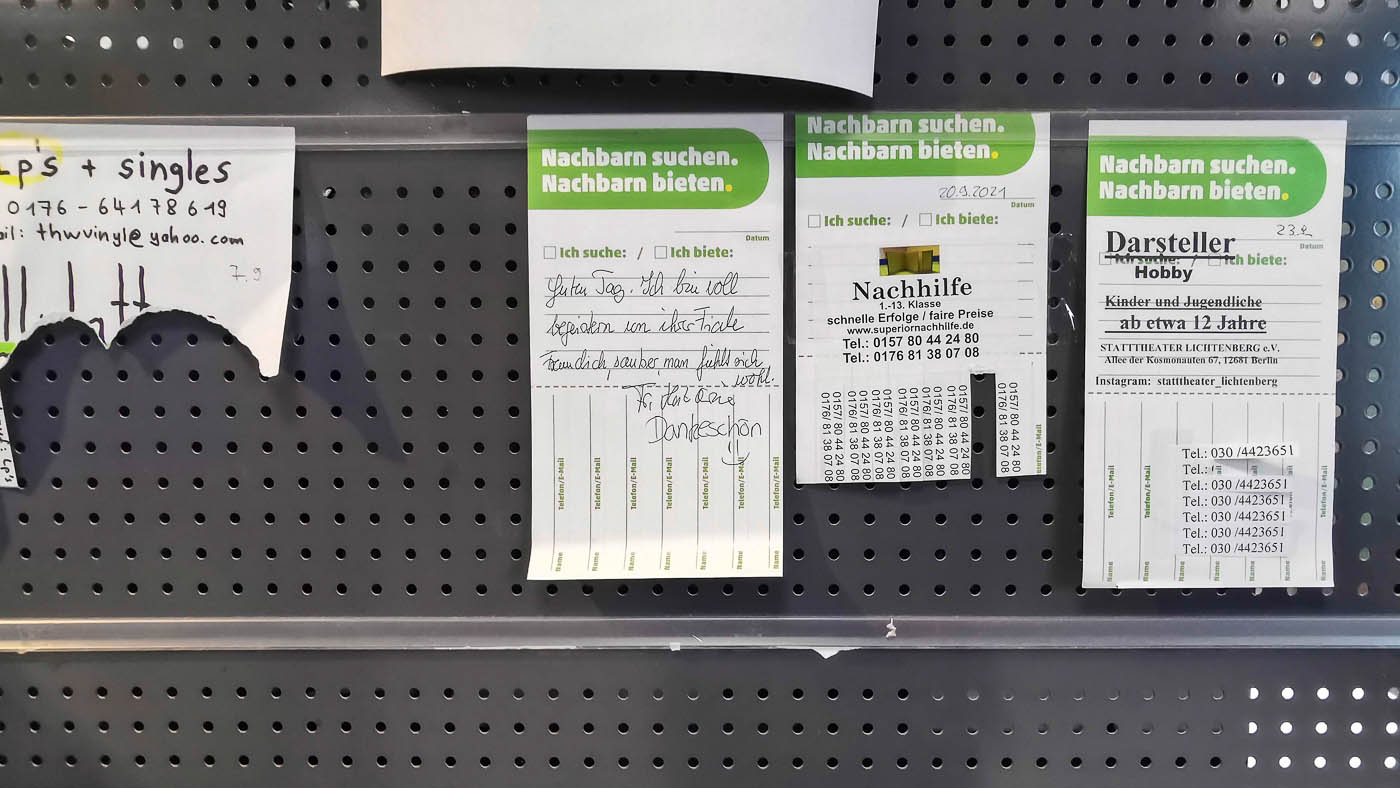 Lp's + singles
0176 - 64178619
ail: thwvinyl@yahoo.com
7.9
Nachbarn suchen.
Nachbarn bieten.
Datum
Ich suche: / Ich biete:
Guten Tag. Ich bin voll
begeistern von ihrer
Freundlich, sauber, man fühlt sich
wohl.
Dankeschön
Telefon/E-Mail Telefon/E-Mail Telefon/E-Mail Telefon/E-Mail Telefon/E-Mail Telefon/E-Mail Telefon/E-Mail
Name Name Name Name Name Name Name
Nachbarn suchen.
Nachbarn bieten.
20.9.2021
Datum
Ich suche: / Ich biete:
Nachhilfe
1.-13. Klasse
schnelle Erfolge / faire Preise
www.superiornachhilfe.de
Tel.: 0157 80 44 24 80
Tel.: 0176 81 38 07 08
0157/ 80 44 24 80
0176/ 81 38 07 08
0157/ 80 44 24 80
0176/ 81 38 07 08
0157/ 80 44 24 80
0176/ 81 38 07 08
0157/ 80 44 24 80
0176/ 81 38 07 08
0157/ 80 44 24 80
0176/ 81 38 07 08
0157/ 80 44 24 80
0176/ 81 38 07 08
0157/ 80 44 24 80
0176/ 81 38 07 08
Telefon/E-Mail
Nachbarn suchen.
Nachbarn bieten.
23.
Datum
Darsteller
Ich suche: / Ich biete:
Hobby
Kinder und Jugendliche
ab etwa 12 Jahre
STATTTHEATER LICHTENBERG e.V.
Allee der Kosmonauten 67, 12681 Berlin
Instagram: statttheater_lichtenberg
Tel.: 030 /4423651
Tel.:
Tel.: 030 /4423651
Tel.: 030 /4423651
Tel.: 030 /4423651
Tel.: 030 /4423651
Tel.: 030 /4423651
Telefon/E-Mail Telefon/E-Mail Telefon/E-Mail
Name Name Name Name Name Name Name